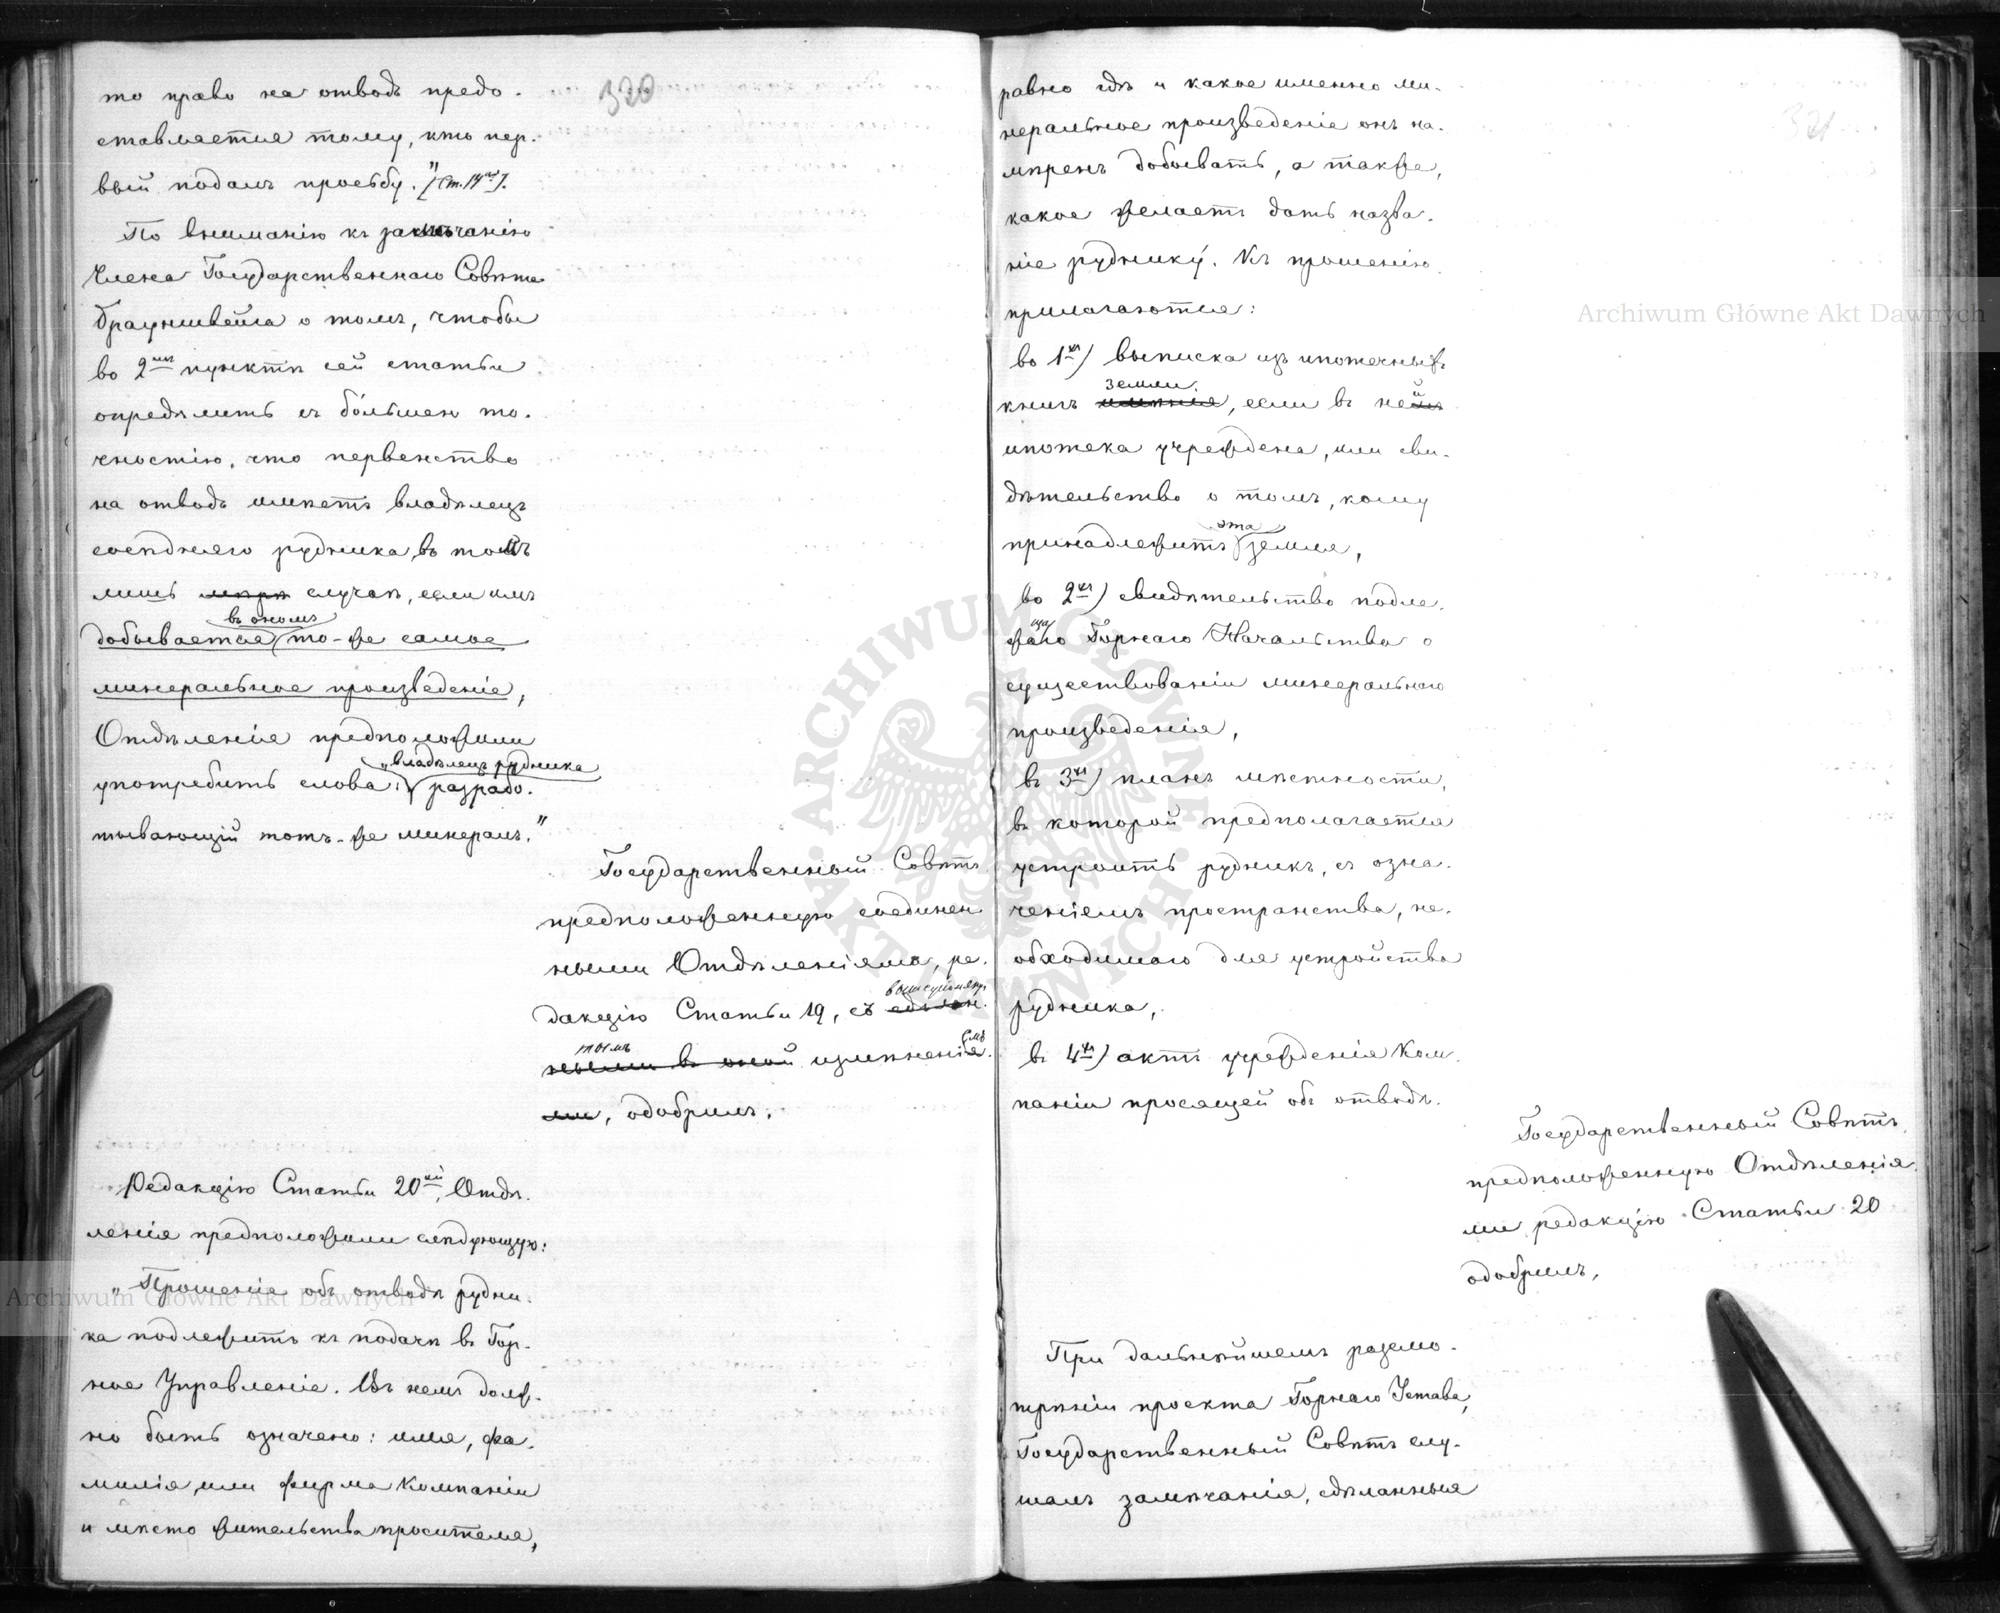 320
то право на отводъ предо-
ставляется тому, кто пер-
вый подалъ просьбу." (Ст. 14ая).
По вниманію къ замѣчанію
Члена Государственнаго Совѣта
Брауншвейга о томъ, чтобы
во 2мъ пунктѣ сей статьи
опредѣлить съ бо́льшею то-
чностію, что первенство
на отводъ имѣетъ владѣлецъ
сосѣдняго рудника въ томъ
лишь случаѣ, если имъ
въ ономъ
добывается то-же самое
минеральное произведеніе,
Отдѣленія предположили
„владѣлецъ рудника
употребить слова: разрабо-
тывающій тотъ-же минералъ."
Государственный Совѣтъ
предположенную соединен-
ными Отдѣленіями, ре-
вышеупомяну-
дакцію Статьи 19, съ сдѣлан-
тымъ емъ
ными въ оной измѣненія-
ми, одобрилъ.
Редакцію Статьи 20ой, Отдѣ-
ленія предположили слѣдующую:
„Прошеніе объ отводѣ рудни-
ка подлежитъ къ подачѣ въ Гор-
ное Управленіе. Въ немъ долж-
но быть означено: имя, фа-
милія, или фирма Компаніи
и мѣсто жительства просителя,
321
равно гдѣ и какое именно ми-
неральное произведеніе онъ на-
мѣренъ добывать, а также,
какое желаетъ дать назва-
ніе руднику. Къ прошенію
прилагаются:
во 1хъ) выписка изъ ипотечныхъ
земли
книгъ имѣнія, если въ ней
ипотека учреждена, или сви-
дѣтельство о томъ, кому
эта
принадлежитъ земля,
во 2хъ) свидѣтельство подле-
жащаго Горнаго Начальства о
существованіи минеральнаго
произведенія,
въ 3хъ) планъ мѣстности,
въ которой предполагается
устроить рудникъ, съ озна-
ченіемъ пространства, не-
обходимаго для устройства
рудника,
въ 4хъ) актъ учрежденія Ком-
паніи просящей объ отводѣ.
Государственный Совѣтъ
предположенную Отдѣленія-
ми редакцію Статьи 20
одобрилъ.
При дальнѣйшемъ разсмо-
трѣніи проекта Горнаго Устава,
Государственный Совѣтъ слу-
шалъ замѣчанія, сдѣланныя
Archiwum Główne Akt Dawnych
Archiwum Główne Akt Dawnych
ARCHIWUM GŁÓWNE AKT DAWNYCH